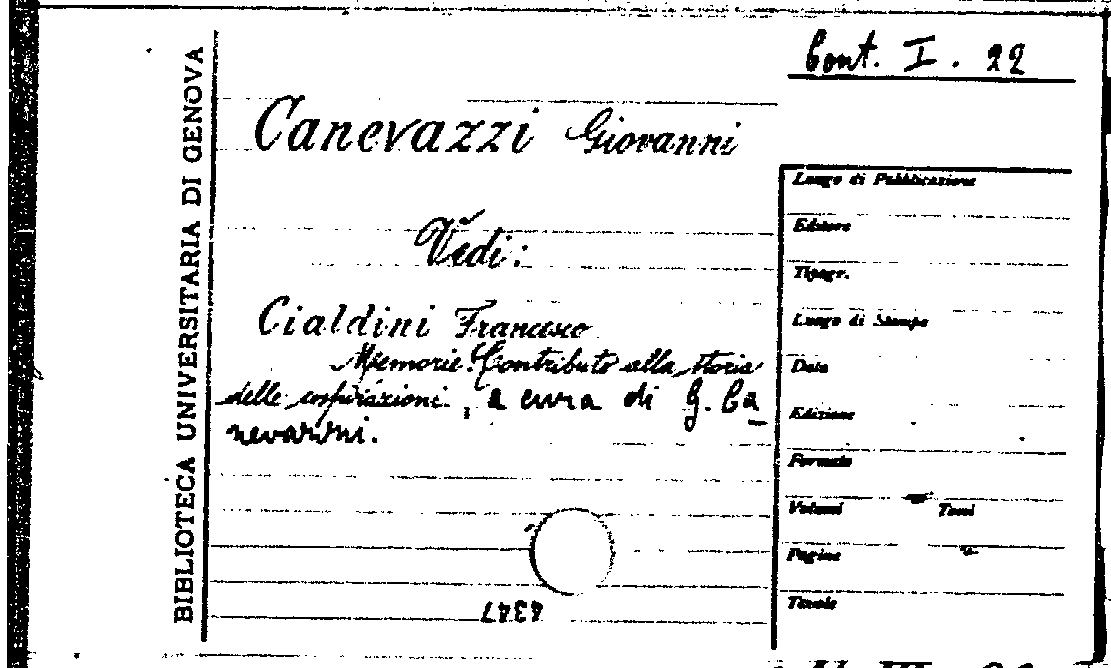 Cont. I. 22
BIBLIOTECA UNIVERSITARIA DI GENOVA
Canevazzi Giovanni
Vedi:
Cialdini Francesco
Memorie. Contributo alla storia
delle cospirazioni., a cura di G. Ca
nevazzi.
Luogo di Pubblicazione
Editore
Tipogr.
Luogo di Stampa
Data
Edizione
Formato
Volumi Tomi
Pagine
Tavole
4347